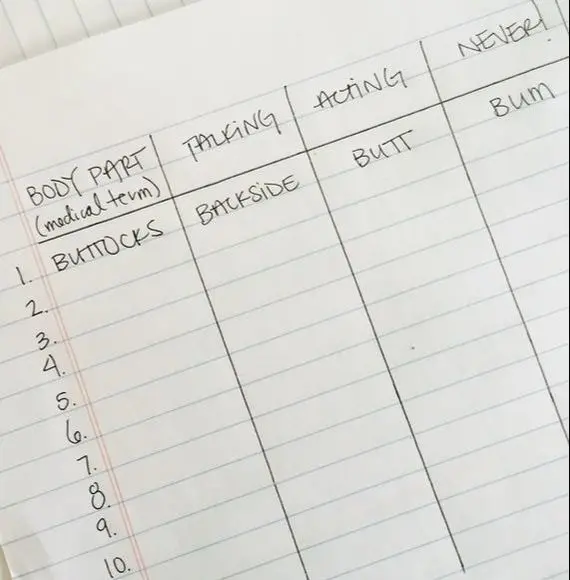 BODY PART TALKING ACTING NEVER!
(medical term)
1. BUTTOCKS BACKSIDE BUTT BUM
2.
3.
4.
5.
6.
7.
8.
9.
10.